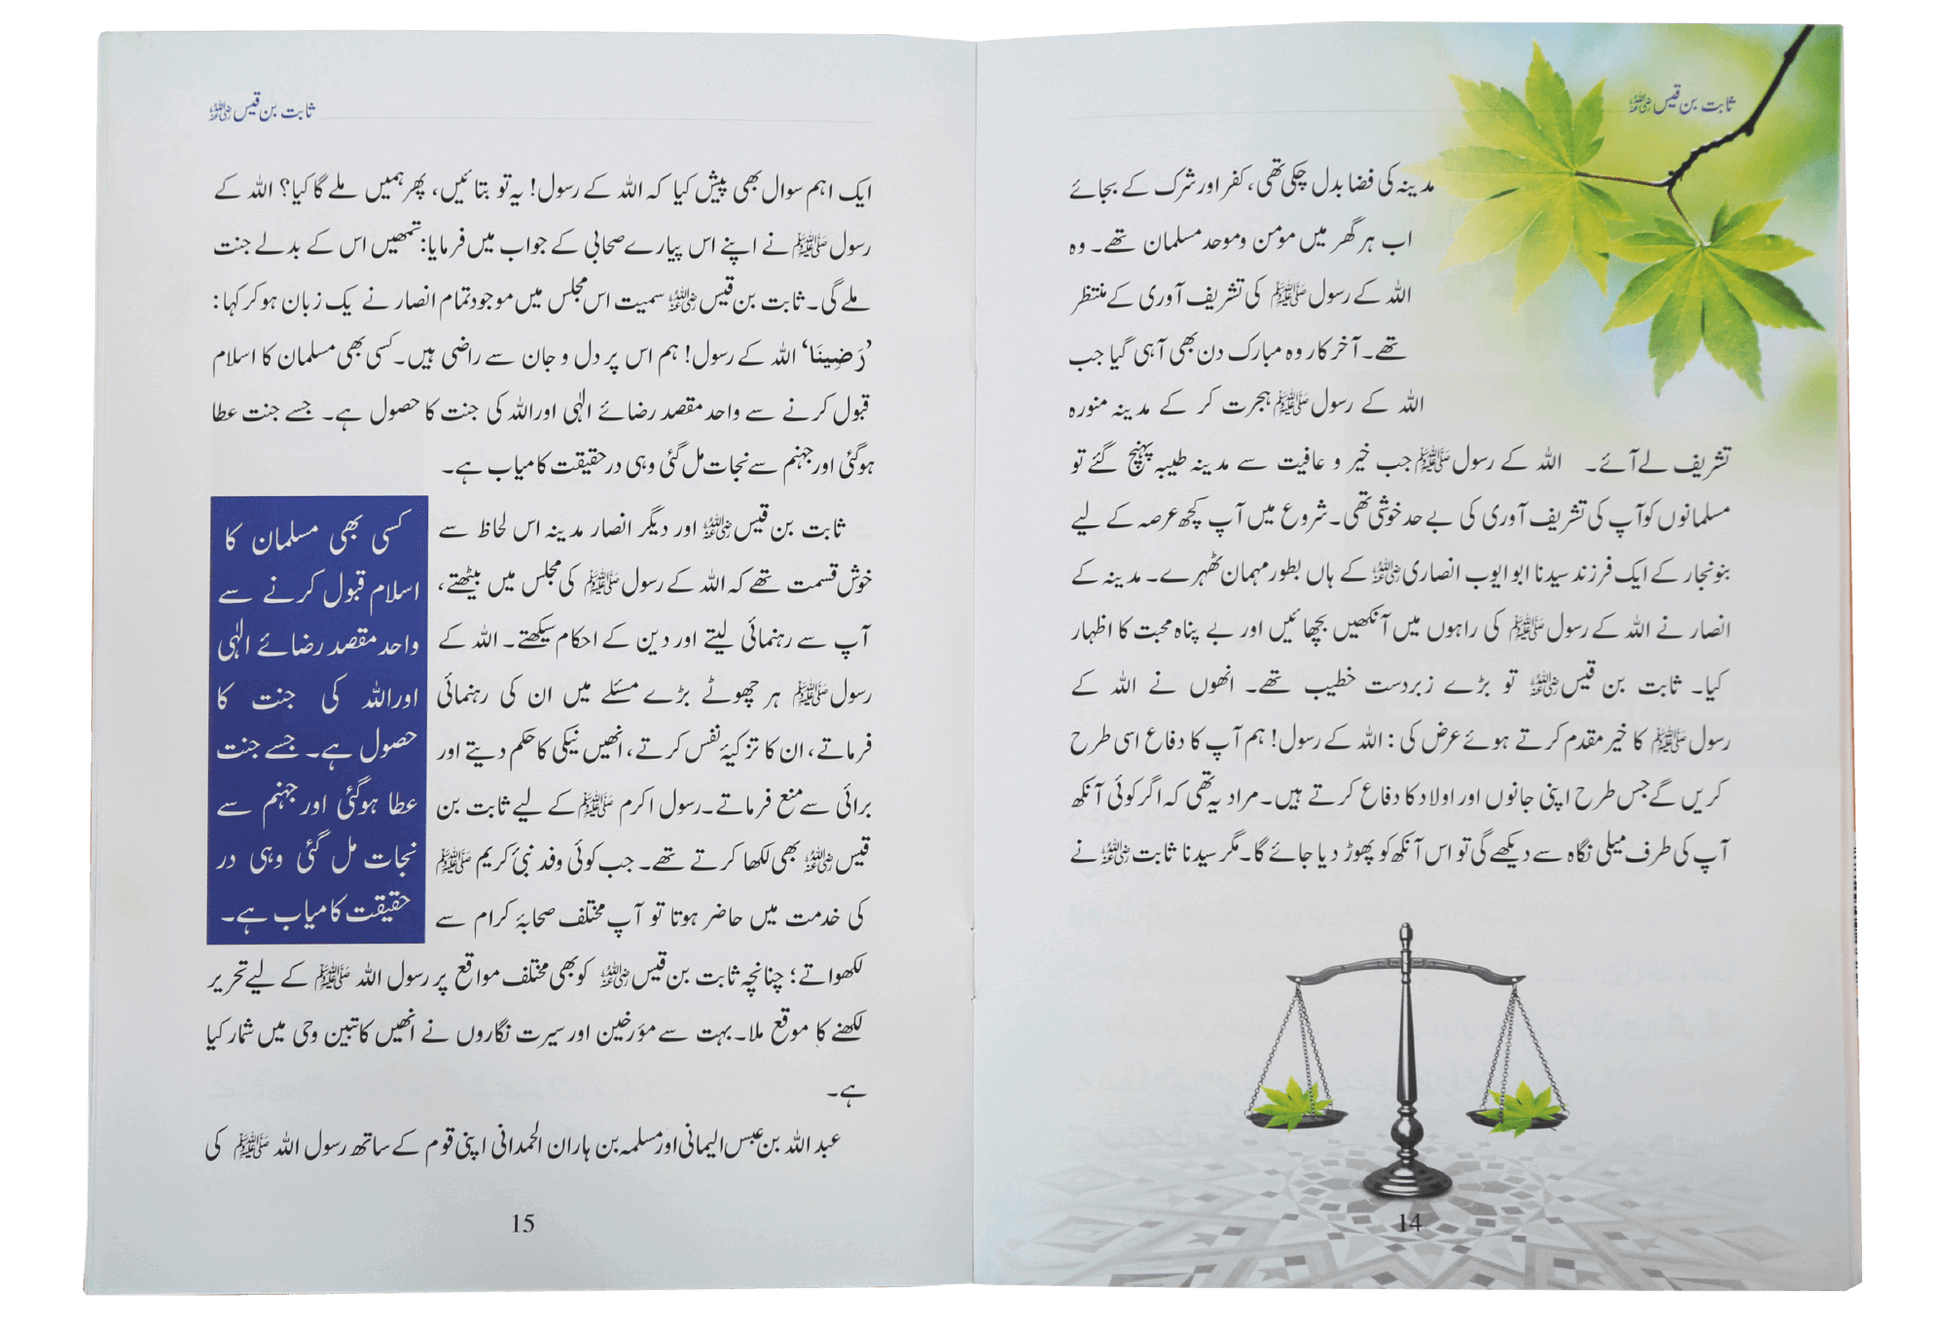 ثابت بن قیس رضی اللہ عنہ
مدینہ کی فضا بدل چکی تھی، کفر اور شرک کے بجائے
اب ہر گھر میں مومن و موحد مسلمان تھے۔ وہ
اللہ کے رسول ﷺ کی تشریف آوری کے منتظر
تھے۔ آخر کار وہ مبارک دن بھی آہی گیا جب
اللہ کے رسول ﷺ ہجرت کر کے مدینہ منورہ
تشریف لے آئے۔ اللہ کے رسول ﷺ جب خیر و عافیت سے مدینہ طیبہ پہنچ گئے تو
مسلمانوں کو آپ کی تشریف آوری کی بے حد خوشی تھی۔ شروع میں آپ کچھ عرصہ کے لیے
بنو نجار کے ایک فرزند سیدنا ابو ایوب انصاری رضی اللہ عنہ کے ہاں بطور مہمان ٹھہرے۔ مدینہ کے
انصار نے اللہ کے رسول ﷺ کی راہوں میں آنکھیں بچھائیں اور بے پناہ محبت کا اظہار
کیا۔ ثابت بن قیس رضی اللہ عنہ تو بڑے زبردست خطیب تھے۔ انھوں نے اللہ کے
رسول ﷺ کا خیر مقدم کرتے ہوئے عرض کی: اللہ کے رسول! ہم آپ کا دفاع اسی طرح
کریں گے جس طرح اپنی جانوں اور اولاد کا دفاع کرتے ہیں۔ مراد یہ تھی کہ اگر کوئی آنکھ
آپ کی طرف میلی نگاہ سے دیکھے گی تو اس آنکھ کو پھوڑ دیا جائے گا۔ مگر سیدنا ثابت رضی اللہ عنہ نے
14
ثابت بن قیس رضی اللہ عنہ
ایک اہم سوال بھی پیش کیا کہ اللہ کے رسول! یہ تو بتائیں، پھر ہمیں ملے گا کیا؟ اللہ کے
رسول ﷺ نے اپنے اس پیارے صحابی کے جواب میں فرمایا: تمھیں اس کے بدلے جنت
ملے گی۔ ثابت بن قیس رضی اللہ عنہ سمیت اس مجلس میں موجود تمام انصار نے یک زبان ہو کر کہا:
’رَضِینَا‘ اللہ کے رسول! ہم اس پر دل و جان سے راضی ہیں۔ کسی بھی مسلمان کا اسلام
قبول کرنے سے واحد مقصد رضائے الٰہی اور اللہ کی جنت کا حصول ہے۔ جسے جنت عطا
ہوگئی اور جہنم سے نجات مل گئی وہی درحقیقت کامیاب ہے۔
ثابت بن قیس رضی اللہ عنہ اور دیگر انصار مدینہ اس لحاظ سے
خوش قسمت تھے کہ اللہ کے رسول ﷺ کی مجلس میں بیٹھتے،
آپ سے رہنمائی لیتے اور دین کے احکام سیکھتے۔ اللہ کے
رسول ﷺ ہر چھوٹے بڑے مسئلے میں ان کی رہنمائی
فرماتے، ان کا تزکیۂ نفس کرتے، انھیں نیکی کا حکم دیتے اور
برائی سے منع فرماتے۔ رسول اکرم ﷺ کے لیے ثابت بن
قیس رضی اللہ عنہ بھی لکھا کرتے تھے۔ جب کوئی وفد نبیٔ کریم ﷺ
کی خدمت میں حاضر ہوتا تو آپ مختلف صحابۂ کرام سے
لکھواتے؛ چنانچہ ثابت بن قیس رضی اللہ عنہ کو بھی مختلف مواقع پر رسول اللہ ﷺ کے لیے تحریر
لکھنے کا موقع ملا۔ بہت سے مؤرخین اور سیرت نگاروں نے انھیں کاتبین وحی میں شمار کیا
ہے۔
عبد اللہ بن عبس الیمانی اور مسلمہ بن ہاران الحمدانی اپنی قوم کے ساتھ رسول اللہ ﷺ کی
کسی بھی مسلمان کا
اسلام قبول کرنے سے
واحد مقصد رضائے الٰہی
اور اللہ کی جنت کا
حصول ہے۔ جسے جنت
عطا ہوگئی اور جہنم سے
نجات مل گئی وہی در
حقیقت کامیاب ہے۔
15